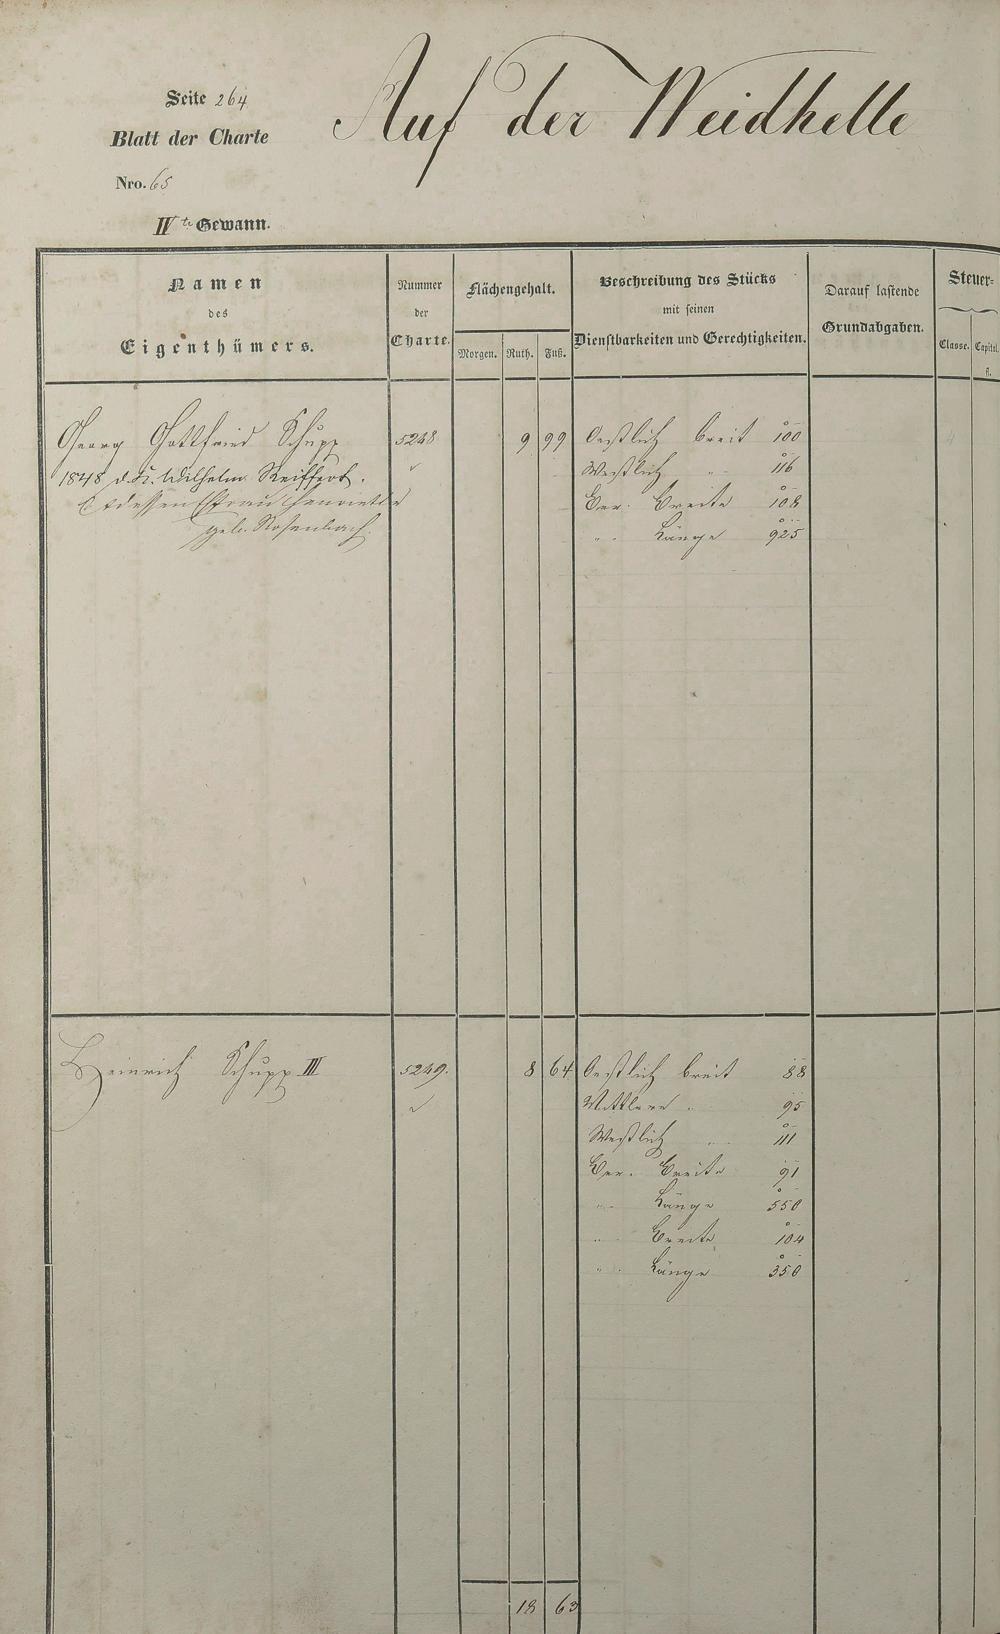 Seite 264
Auf der Weidhelle
Blatt der Charte
Nro. 65
IV te Gewann.
Namen
des
Eigenthümers.
Nummer
der
Charte.
Flächengehalt.
Morgen. Ruth. Fuß.
Beschreibung des Stücks
mit seinen
Dienstbarkeiten und Gerechtigkeiten.
Darauf lastende
Grundabgaben.
Steuer-
Classe. Capital.
fl.
Georg Gottfried Schupp 5248 9 99 Oestlich breit 100
1848 Wilhelm Reiffert. Westlich " 116
dessen Ehefrau Henriette Ver. Breite 108
geb. Rosenbach. " Länge 925
Heinrich Schupp III 5249. 8 64 Oestlich breit 88
Mittlere " 95
Westlich " 111
Ver. Breite 91
" Länge 550
" Breite 104
" Länge 350
18 63